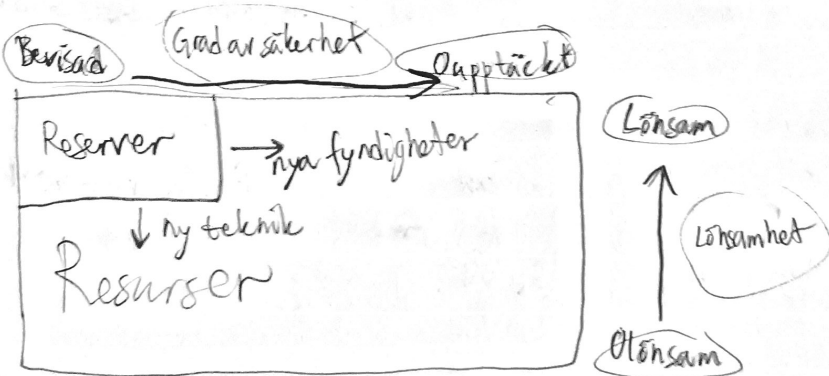 Bevisad
Grad av säkerhet
Oupptäckt
Reserver
nya fyndigheter
ny teknik
Resurser
Lönsam
Lönsamhet
Olönsam